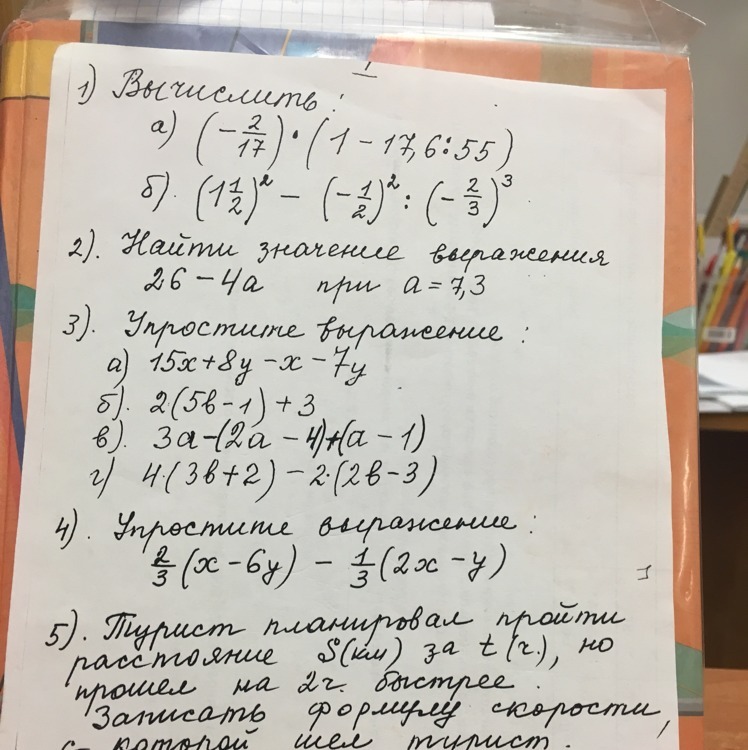 1) Вычислить:
а) (-2/17) · (1 - 17,6:55)
б). (1 1/2)² - (-1/2)² : (-2/3)³
2). Найти значение выражения
26 - 4а при а = 7,3
3). Упростите выражение:
а) 15x + 8y - x - 7y
б). 2(5в - 1) + 3
в). 3а - (2а - 4) + (а - 1)
г) 4·(3в + 2) - 2·(2в - 3)
4). Упростите выражение:
2/3 (x - 6y) - 1/3 (2x - y)
5). Турист планировал пройти
расстояние S(км) за t(г.), но
прошел на 2г. быстрее.
Записать формулу скорости,
с которой шел турист.